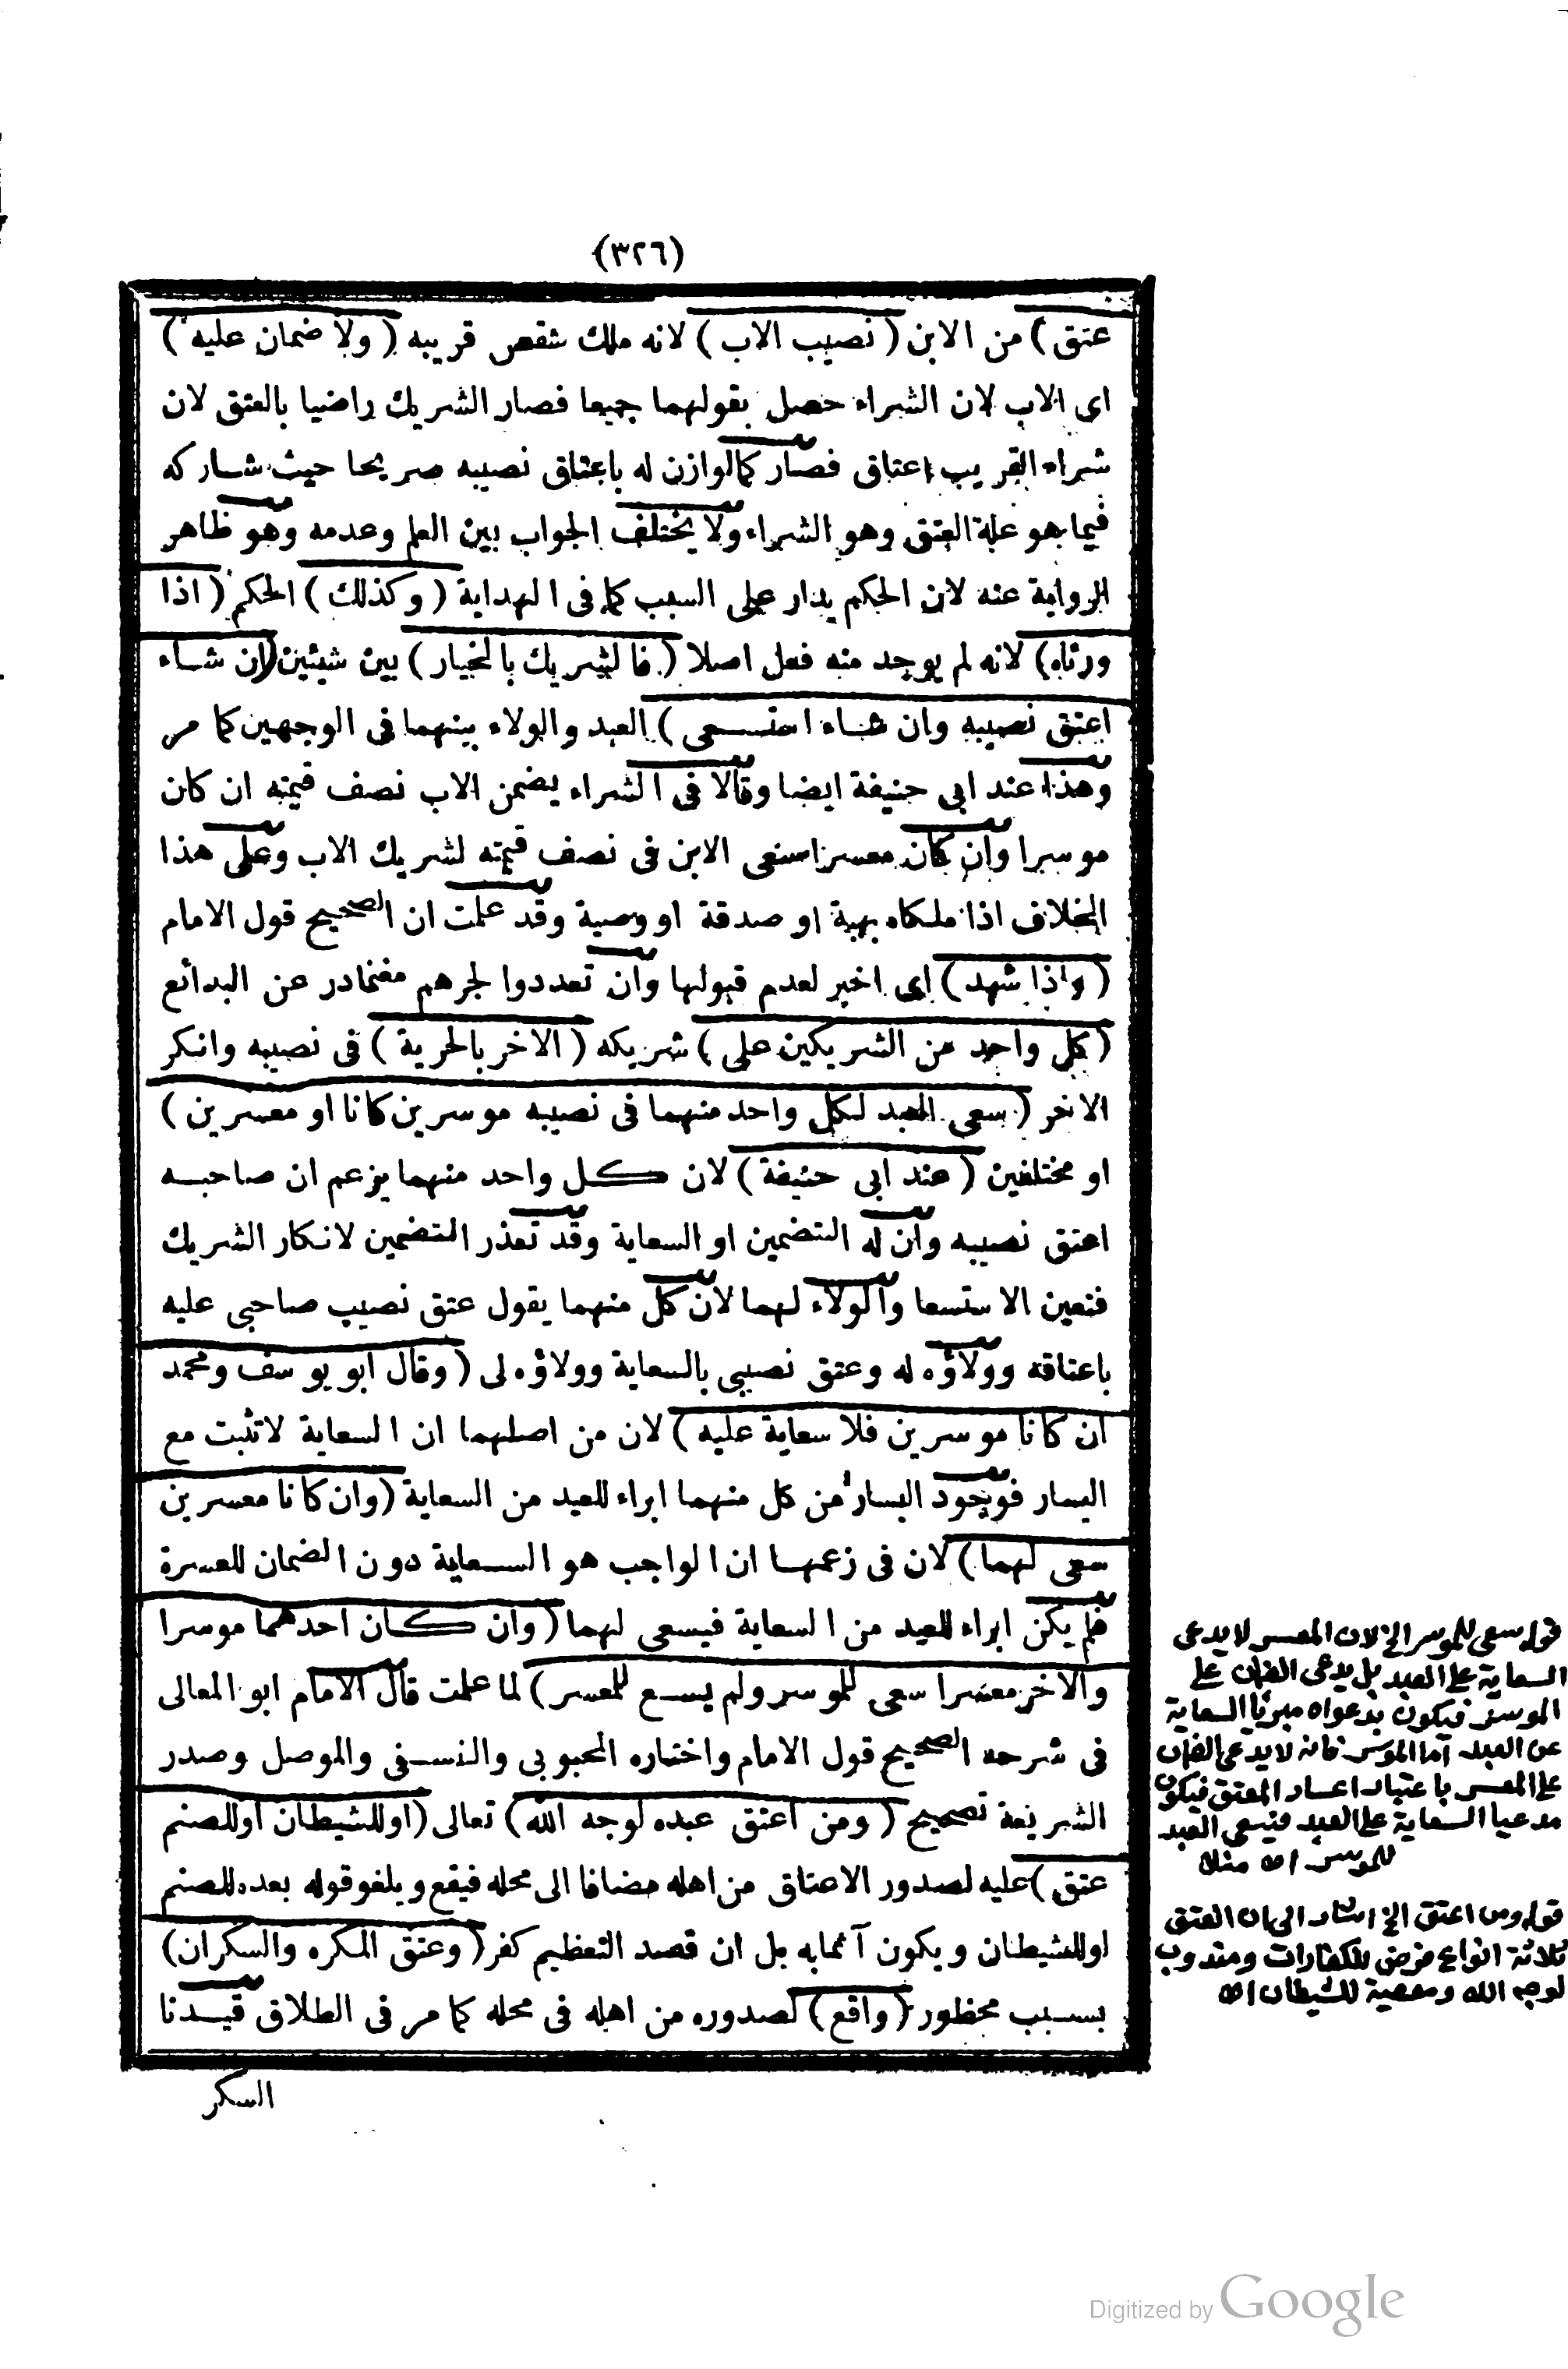 (٣٢٦)
عتق) من الابن (نصيب الاب) لانه ملك شقص قريبه (ولا ضمان عليه)
اى الاب لان الشراء حصل بقولهما جميعا فصار الشريك راضيا بالعتق لان
شراء القريب اعتاق فصار كمالوازن له باعتاق نصيبه صريحا حيث شاركه
فيما هو علة العتق وهو الشراء ولا يختلف الجواب بين العلم وعدمه وهو ظاهر
الرواية عنه لان الحكم يدار على السبب كما فى الهداية (وكذلك) الحكم (اذا
ورثاه) لانه لم يوجد منه فعل اصلا (فالشريك بالخيار) بين شيئين (ان شاء
اعتق نصيبه وان شاء استسعى) العبد والولاء بينهما فى الوجهين كما مر
وهذا عند ابى حنيفة ايضا وقالا فى الشراء يضمن الاب نصف قيمته ان كان
موسرا وان كان معسرا سعى الابن فى نصف قيمته لشريك الاب وعلى هذا
الخلاف اذا ملكاه بهبة او صدقة او وصية وقد علمت ان الصحيح قول الامام
(واذا شهد) اى اخبر لعدم قبولها وان تعددوا لجرهم مغنمادر عن البدائع
(كل واحد من الشريكين على) شريكه (الاخر بالحرية) فى نصيبه وانكر
الاخر (سعى العبد لكل واحد منهما فى نصيبه موسرين كانا او معسرين)
او مختلفين (عند ابى حنيفة) لان كل واحد منهما يزعم ان صاحبه
اعتق نصيبه وان له التضمين او السعاية وقد تعذر التضمين لانكار الشريك
فتعين الاستسعا والولاء لهما لان كل منهما يقول عتق نصيب صاحبى عليه
باعتاقه وولاؤه له وعتق نصيبى بالسعاية وولاؤه لى (وقال ابو يوسف ومحمد
ان كانا موسرين فلا سعاية عليه) لان من اصلهما ان السعاية لاتثبت مع
اليسار فوجود اليسار من كل منهما ابراء للعبد من السعاية (وان كانا معسرين
سعى لهما) لان فى زعمهما ان الواجب هو السعاية دون الضمان للعسرة
فلم يكن ابراء للعبد من السعاية فيسعى لهما (وان كان احدهما موسرا
والاخر معسرا سعى للموسر ولم يسع للمعسر) لما علمت قال الامام ابو المعالى
فى شرحه الصحيح قول الامام واختاره المحبوبى والنسفى والموصل وصدر
الشريعة تصحيح (ومن اعتق عبده لوجه الله) تعالى (اوللشيطان اوللصنم
عتق) عليه لصدور الاعتاق من اهله مضافا الى محله فيقع ويلغوقوله بعده للصنم
اوللشيطان ويكون آثمابه بل ان قصد التعظيم كفر (وعتق المكره والسكران)
بسبب محظور (واقع) لصدوره من اهله فى محله كما مر فى الطلاق قيدنا
السكر
قوله سعى للموسر الخ لان المعسر لا يدعى
السعاية على العبد بل يدعى الضمان على
الموسر فيكون بدعواه مبرئا السعاية
عن العبد اما الموسر فانه لا يدعى الضمان
على المعسر باعتبار اعسار المعتق فيكون
مدعيا السعاية على العبد فيسعى العبد
للموسر اه منلا
قوله ومن اعتق الخ اشار الى ان العتق
ثلاثة انواع فرض للكفارات ومندوب
لوجه الله ومعصية للشيطان اه
Digitized by Google